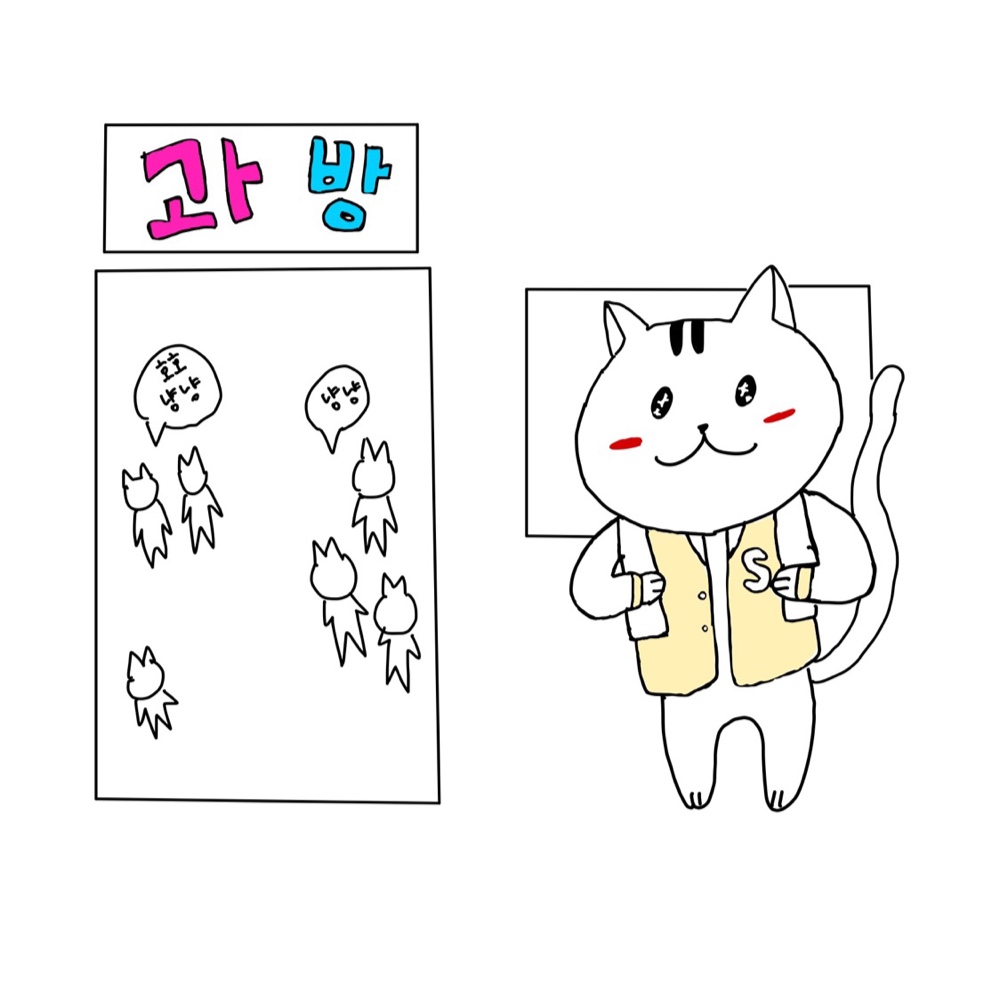 과 방
호호
냥냥
냥냥
S